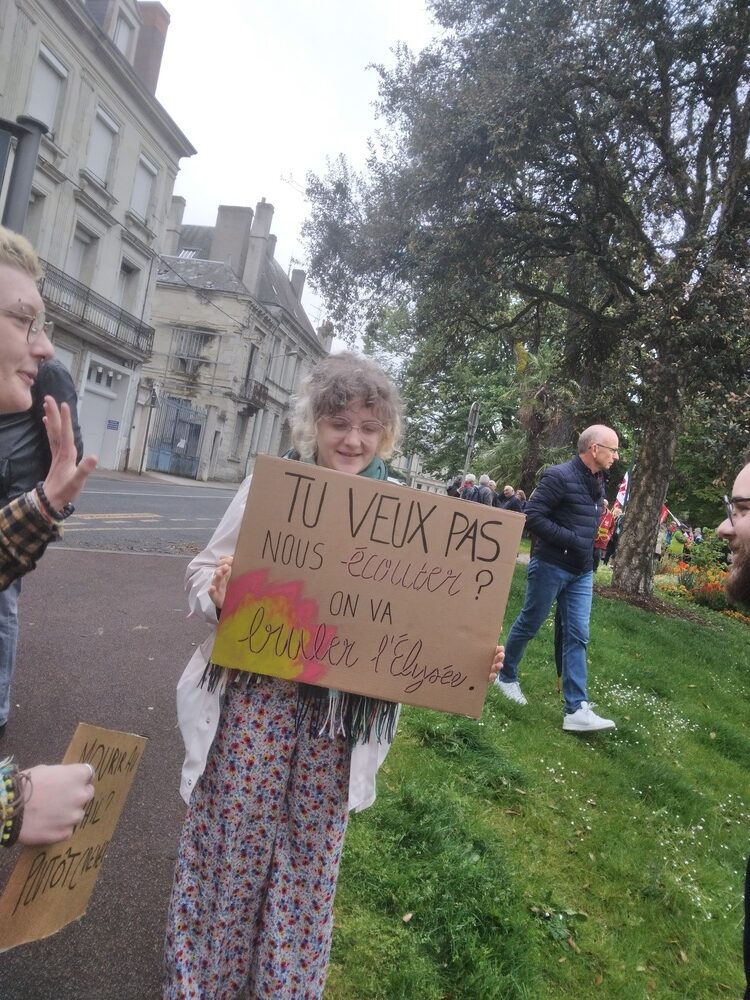 TU VEUX PAS
NOUS écouter ?
ON VA
bruler l'Élysée.
MOURIR AU
PLUTÔT